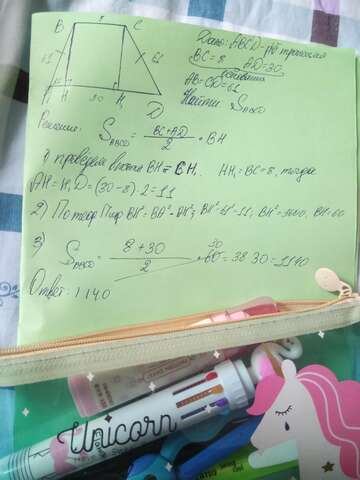 8
B C
61 61
A H 30 H₁ D
Дано: ABCD-р/б трапеция
BC=8 AD=30
основания
AB=CD=61
Найти: S ABCD
Решение: S ABCD = BC+AD / 2 • BH
1) проведем высоты BH = CH₁ HH₁=BC=8, тогда
AH=H₁D=(30-8):2=11
2) По теор Пиф BH²=BA²-AH²; BH²=61²-11², BH²=3600, BH=60
3) S ABCD = 8+30 / 2 • 60 = 38 30 = 1140
30
Ответ: 1140
Unicorn